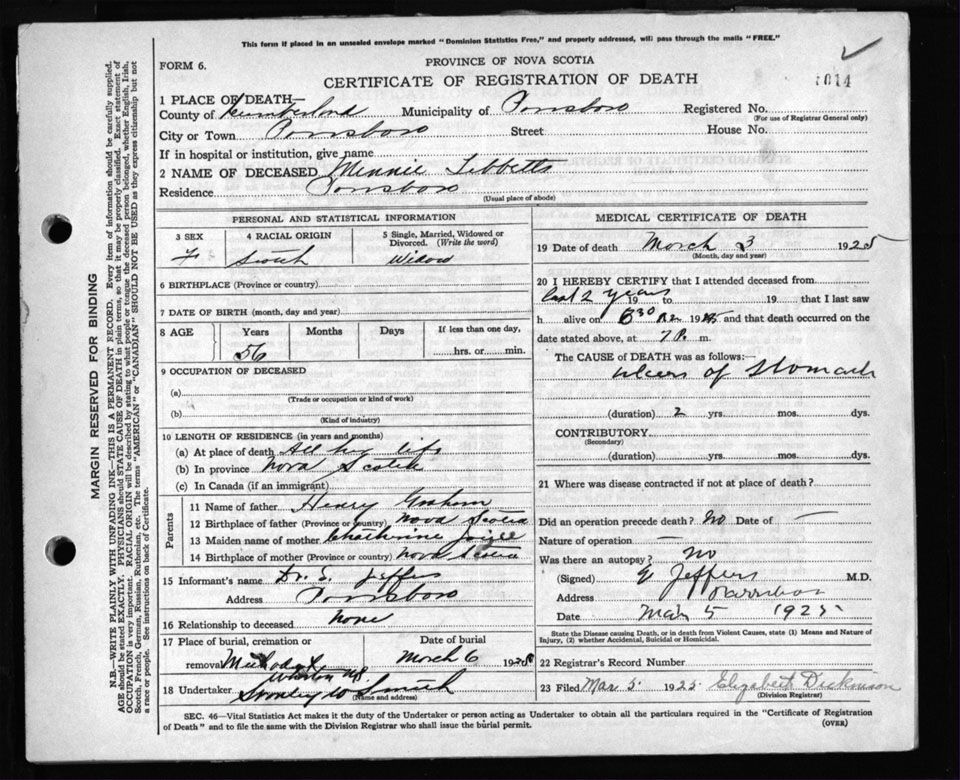 This form if placed in an unsealed envelope marked "Dominion Statistics Free," and properly addressed, will pass through the mails "FREE."
FORM 6.
PROVINCE OF NOVA SCOTIA
CERTIFICATE OF REGISTRATION OF DEATH
1014
1 PLACE OF DEATH—
County of Cumberland Municipality of Parrsboro Registered No.
(For use of Registrar General only)
City or Town Parrsboro Street House No.
If in hospital or institution, give name
2 NAME OF DECEASED Minnie Tibbetts
Residence Parrsboro
(Usual place of abode)
PERSONAL AND STATISTICAL INFORMATION
3 SEX 4 RACIAL ORIGIN 5 Single, Married, Widowed or Divorced. (Write the word)
F Scotch Widow
6 BIRTHPLACE (Province or country)
7 DATE OF BIRTH (month, day and year)
8 AGE Years Months Days If less than one day,
56 hrs. or min.
9 OCCUPATION OF DECEASED
(a)
(Trade or occupation or kind of work)
(b)
(Kind of industry)
10 LENGTH OF RESIDENCE (in years and months)
(a) At place of death All her life
(b) In province Nova Scotia
(c) In Canada (if an immigrant)
Parents
11 Name of father Henry Graham
12 Birthplace of father (Province or country) Nova Scotia
13 Maiden name of mother Chatherine
14 Birthplace of mother (Province or country) Nova Scotia
15 Informant's name Dr. Jeffers
Address Parrsboro
16 Relationship to deceased None
17 Place of burial, cremation or Date of burial
removal Methodist March 6 1925
Wharton NS
18 Undertaker Stanley W Smith
(Name and address)
MEDICAL CERTIFICATE OF DEATH
19 Date of death March 3 1925
(Month, day and year)
20 I HEREBY CERTIFY that I attended deceased from
last 2 years 19 to 19 that I last saw
h alive on 1925 and that death occurred on the
date stated above, at 7 P. m.
The CAUSE of DEATH was as follows:—
ulcers of Stomach
(duration) 2 yrs. mos. dys.
CONTRIBUTORY
(Secondary)
(duration) yrs. mos. dys.
21 Where was disease contracted if not at place of death?
Did an operation precede death? No Date of —
Nature of operation —
Was there an autopsy? No
(Signed) Jeffers M.D.
Address Parrsboro
Date Mar 5 1925
State the Disease causing Death, or in death from Violent Causes, state (1) Means and Nature of
Injury, (2) whether Accidental, Suicidal or Homicidal.
22 Registrar's Record Number
23 Filed Mar 5. 1925 Elizabeth Dickinson
(Division Registrar)
SEC. 46—Vital Statistics Act makes it the duty of the Undertaker or person acting as Undertaker to obtain all the particulars required in the "Certificate of Registration
of Death" and to file the same with the Division Registrar who shall issue the burial permit.
(OVER)
MARGIN RESERVED FOR BINDING
N.B.—WRITE PLAINLY WITH UNFADING INK—THIS IS A PERMANENT RECORD. Every item of information should be carefully supplied.
AGE should be stated EXACTLY. PHYSICIANS should STATE CAUSE OF DEATH in plain terms, so that it may be properly classified. Exact statement of
OCCUPATION is very important. RACIAL ORIGIN will be described by stating to what people or tongue the deceased person belonged, whether English, Irish,
Scotch, French, German, Russian, Ruthenian, etc. The terms "AMERICAN" or "CANADIAN" SHOULD NOT BE USED as they express citizenship but not
a race or people. See instructions on back of Certificate.